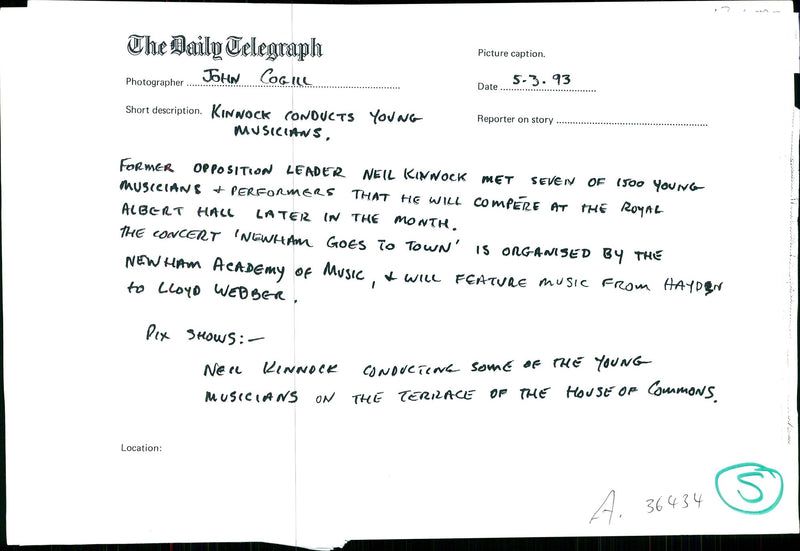 The Daily Telegraph
Picture caption.
Photographer JOHN COGILL
Date 5-3.93
Short description. KINNOCK CONDUCTS YOUNG
MUSICIANS.
Reporter on story
FORMER OPPOSITION LEADER NEIL KINNOCK MET SEVEN OF 1500 YOUNG
MUSICIANS + PERFORMERS THAT HE WILL COMPÈRE AT THE ROYAL
ALBERT HALL LATER IN THE MONTH.
THE CONCERT 'NEWHAM GOES TO TOWN' IS ORGANISED BY THE
NEWHAM ACADEMY OF MUSIC, & WILL FEATURE MUSIC FROM HAYDN
TO LLOYD WEBBER.
PIX SHOWS:-
NEIL KINNOCK CONDUCTING SOME OF THE YOUNG
MUSICIANS ON THE TERRACE OF THE HOUSE OF COMMONS.
Location:
A. 36434
5